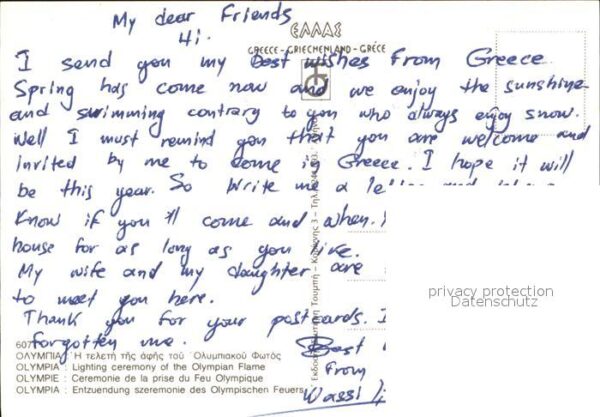 My dear Friends
Hi.
ΕΛΛΑΣ
GREECE - GRIECHENLAND - GRÈCE
I send you my Best wishes From Greece
Spring has come now and we enjoy the sunshine
and swimming contrary to you who always enjoy snow.
Well I must remind you that you are welcome and
invited by me to come in Greece. I hope it will
be this year. So write me a letter and
Know if you'll come and when.
house for as long as you like.
My wife and my daughter are
to meet you here.
Thank you for your postcards. I
forgotten me.
Best
From
Wassili
privacy protection
Datenschutz
607
ΟΛΥΜΠΙΑ : Ἡ τελετή τῆς ἁφῆς τοῦ Ὀλυμπιακοῦ Φωτός
OLYMPIA : Lighting ceremony of the Olympian Flame
OLYMPIE : Ceremonie de la prise du Feu Olympique
OLYMPIA : Entzuendung szeremonie des Olympischen Feuers
Τουμπή - Κομάνης 3 - Τηλ.